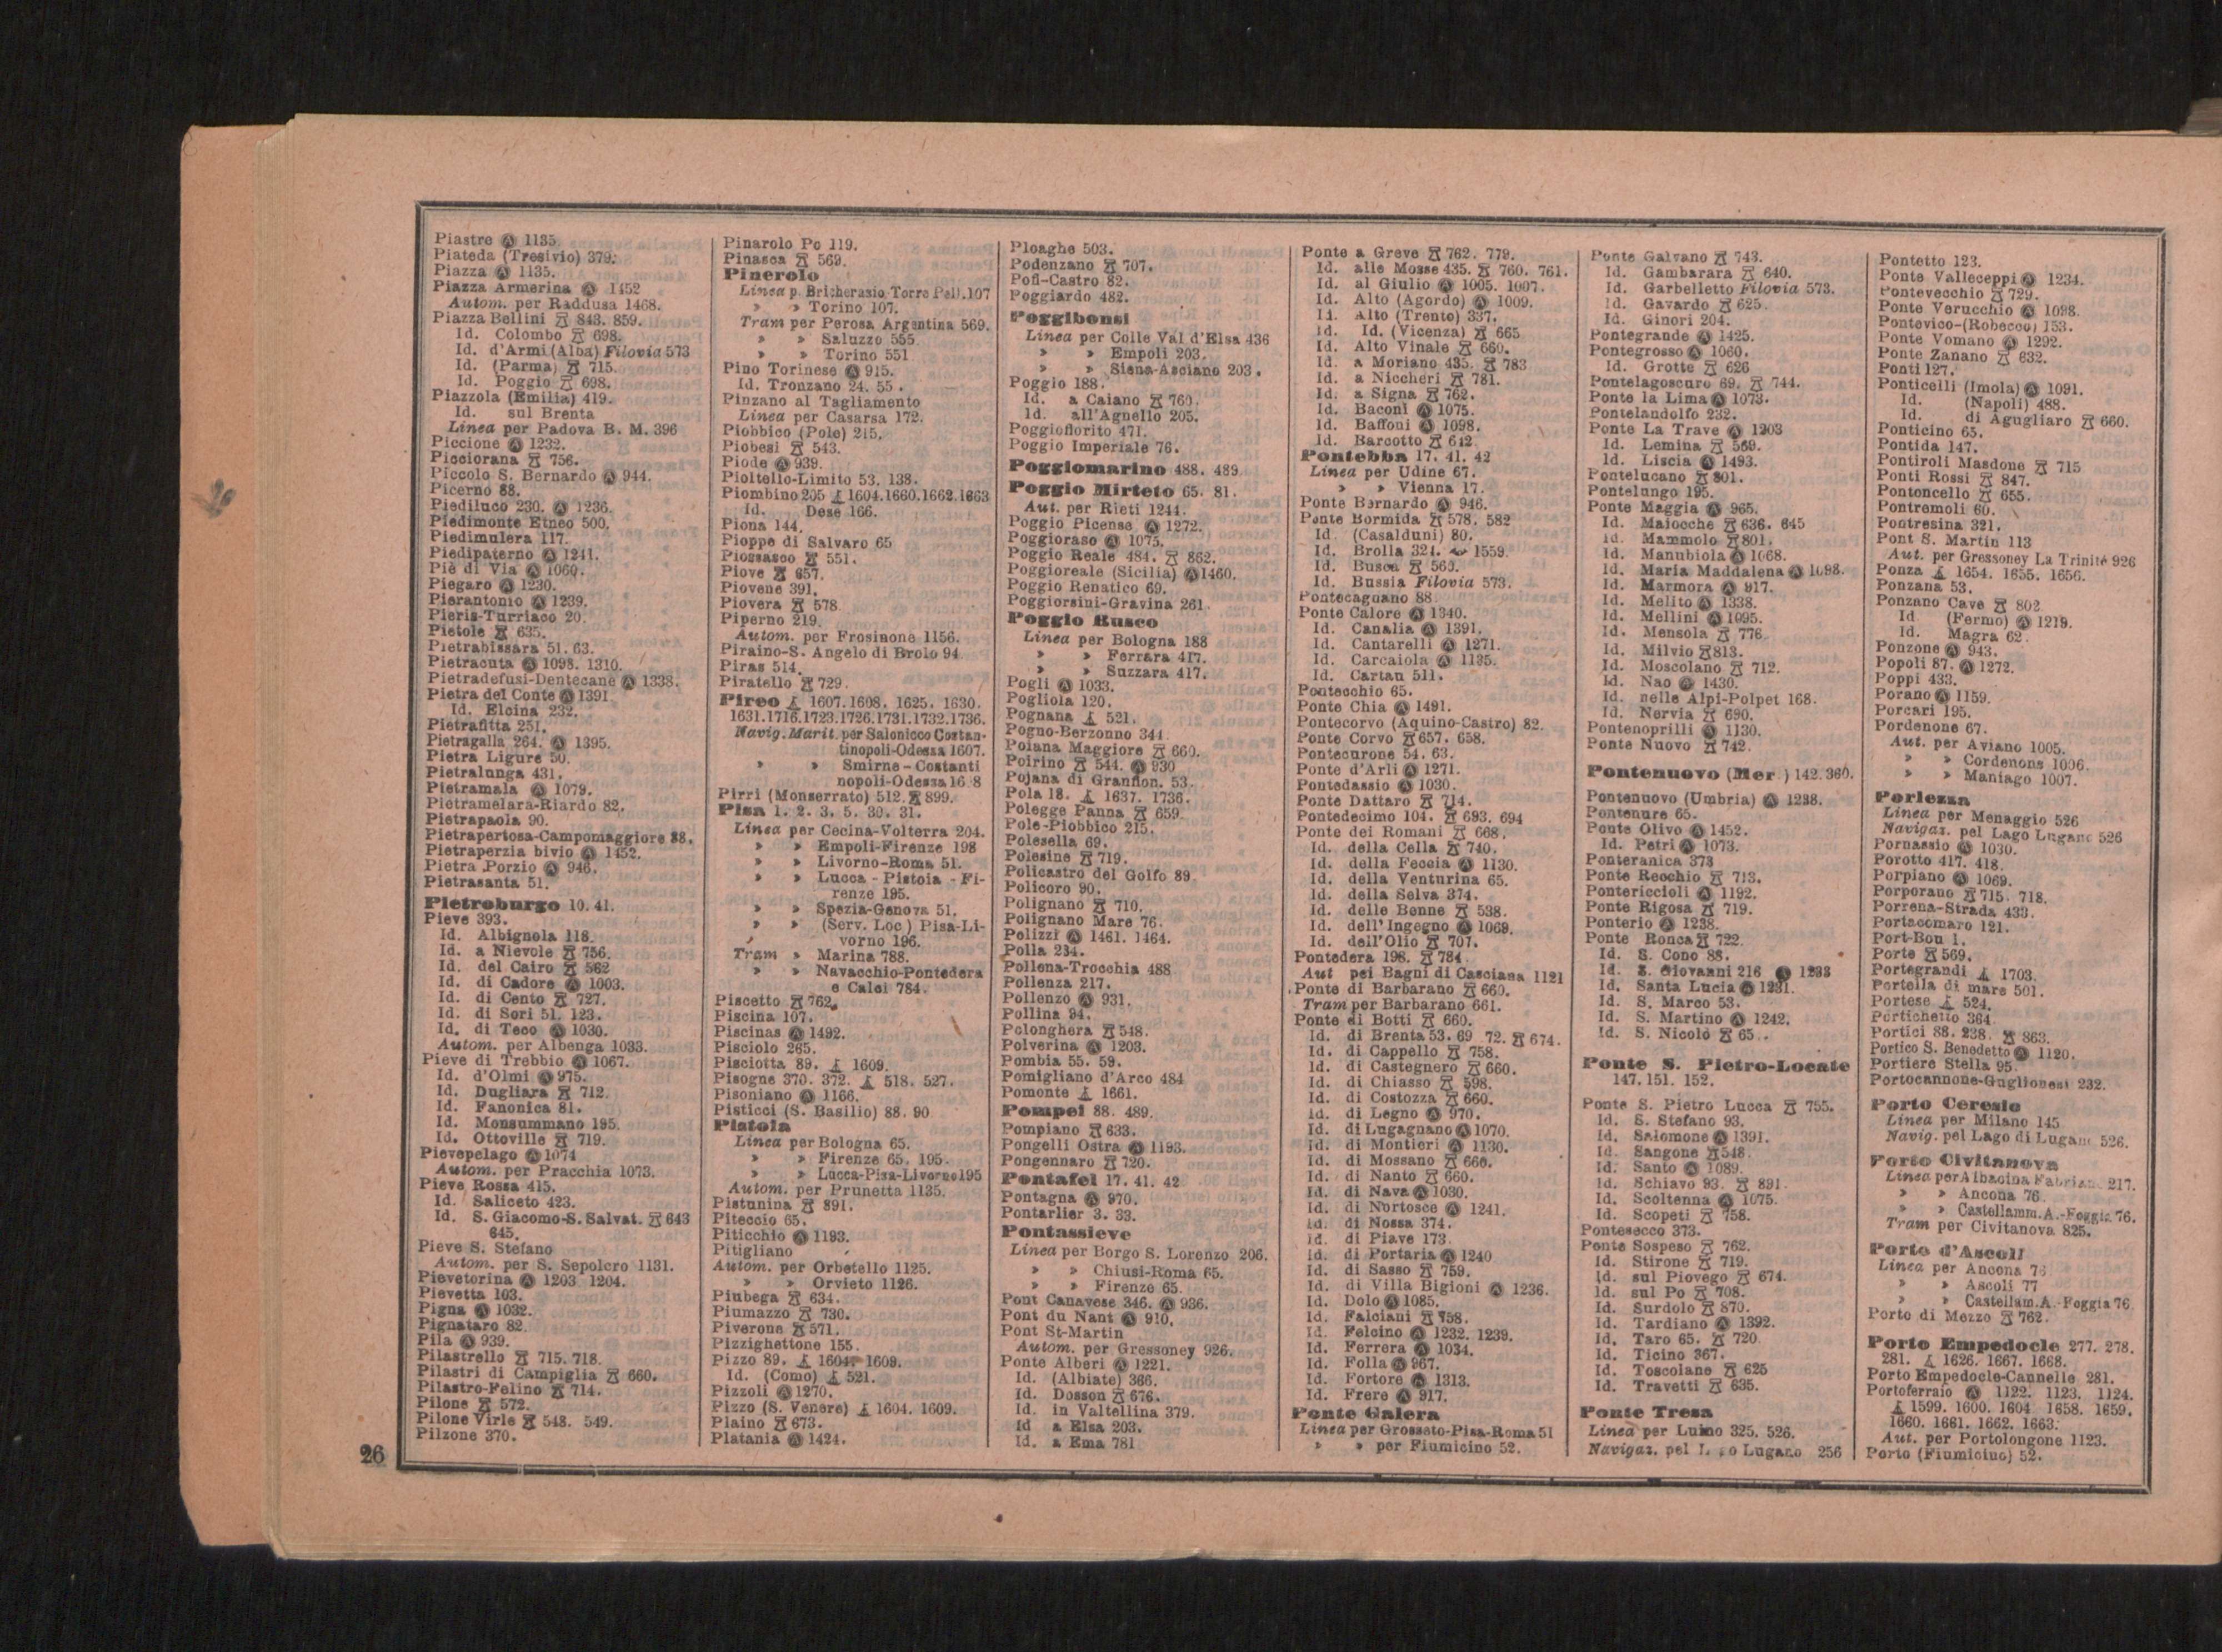 Piastre Ⓐ 1135.
Piateda (Tresivio) 379.
Piazza Ⓐ 1135.
Piazza Armerina Ⓐ 1452
Autom. per Raddusa 1468.
Piazza Bellini 843. 859.
Id. Colombo 698.
Id. d'Armi (Alba) Filovia 573
Id. (Parma) 715.
Id. Poggio 698.
Piazzola (Emilia) 419.
Id. sul Brenta
Linea per Padova B. M. 396
Piccione Ⓐ 1232.
Picciorana 756.
Piccolo S. Bernardo Ⓐ 944.
Picerno 88.
Piediluco 230. Ⓐ 1236.
Piedimonte Etneo 500.
Piedimulera 117.
Piedipaterno Ⓐ 1241.
Piè di Via Ⓐ 1060.
Piegaro Ⓐ 1230.
Pierantonio Ⓐ 1239.
Pieris-Turriaco 20.
Pietole 635.
Pietrabissara 51. 63.
Pietracuta Ⓐ 1098. 1310.
Pietradefusi-Dentecane Ⓐ 1338.
Pietra del Conte Ⓐ 1391
Id. Elcina 232.
Pietrafitta 251.
Pietragalla 264. Ⓐ 1395.
Pietra Ligure 50.
Pietralunga 431.
Pietramala Ⓐ 1079.
Pietramelara-Riardo 82.
Pietrapaola 90.
Pietrapertosa-Campomaggiore 88.
Pietraperzia bivio Ⓐ 1452.
Pietra Porzio Ⓐ 946.
Pietrasanta 51.
Pietroburgo 10. 41.
Pieve 393.
Id. Albignola 118.
Id. a Nievole 756.
Id. del Cairo 562
Id. di Cadore Ⓐ 1003.
Id. di Cento 727.
Id. di Sori 51. 123.
Id. di Teco Ⓐ 1030.
Autom. per Albenga 1033.
Pieve di Trebbio Ⓐ 1067.
Id. d'Olmi Ⓐ 975.
Id. Dugliara 712.
Id. Fanonica 81.
Id. Monsummano 195.
Id. Ottoville 719.
Pievepelago Ⓐ 1074
Autom. per Pracchia 1073.
Pieve Rossa 415.
Id. Saliceto 423.
Id. S. Giacomo-S. Salvat. 643
645.
Pieve S. Stefano
Autom. per S. Sepolcro 1131.
Pievetorina Ⓐ 1203 1204.
Pievetta 103.
Pigna Ⓐ 1032.
Pignataro 82.
Pila Ⓐ 939.
Pilastrello 715. 718.
Pilastri di Campiglia 660.
Pilastro-Felino 714.
Pilone 572.
Pilone Virle 548. 549.
Pilzone 370.
Pinarolo Po 119.
Pinasca 569.
Pinerolo
Linea p. Bricherasio Torre Pell. 107
» » Torino 107.
Tram per Perosa Argentina 569.
» » Saluzzo 555
» » Torino 551
Pino Torinese Ⓐ 915.
Id. Tronzano 24. 55.
Pinzano al Tagliamento
Linea per Casarsa 172.
Piobbico (Pole) 215.
Piobesi 543.
Piode Ⓐ 939.
Pioltello-Limito 53. 138.
Piombino 205 1604.1660.1662.1663
Id. Dese 166.
Piona 144.
Pioppe di Salvaro 65
Piossasco 551.
Piove 657.
Piovene 391.
Piovera 578
Piperno 219.
Autom. per Frosinone 1156.
Piraino-S. Angelo di Brolo 94
Piras 514.
Piratello 729.
Pireo 1607.1608. 1625. 1630.
1631.1716.1723.1726.1731.1732.1736.
Navig. Marit. per Salonicco Costan-
tinopoli-Odessa 1607.
» » Smirne-Costanti
nopoli-Odessa
Pirri (Monserrato) 512. 899.
Pisa 1. 2. 3. 5. 30. 31.
Linea per Cecina-Volterra 204.
» » Empoli-Firenze 198
» » Livorno-Roma 51.
» » Lucca - Pistoia - Fi-
renze 195.
» » Spezia-Genova 51.
» » (Serv. Loc) Pisa-Li-
vorno 196.
Tram » Marina 788.
» » Navacchio-Pontedera
e Calci 784.
Piscetto 762.
Piscina 107.
Piscinas Ⓐ 1492.
Pisciolo 265.
Pisciotta 89. 1609.
Pisogne 370. 372. 518. 527.
Pisoniano Ⓐ 1166.
Pisticci (S. Basilio) 88. 90
Pistoia
Linea per Bologna 65.
» » Firenze 65. 195.
» » Lucca-Pisa-Livorno 195
Autom. per Prunetta 1135.
Pistunina 891.
Piteccio 65.
Piticchio Ⓐ 1193.
Pitigliano
Autom. per Orbetello 1125.
» » Orvieto 1126.
Piubega 634.
Piumazzo 730.
Piverone 571.
Pizzighettone 155.
Pizzo 89. 1604. 1609.
Id. (Como) 521.
Pizzoli Ⓐ 1270.
Pizzo (S. Venere) 1604. 1609.
Plaino 673.
Platania Ⓐ 1424.
Ploaghe 503.
Podenzano 707.
Pofi-Castro 82.
Poggiardo 482.
Poggibonsi
Linea per Colle Val d'Elsa 436
» » Empoli 203.
» » Siena-Asciano 203.
Poggio 188.
Id. a Caiano 760.
Id. all'Agnello 205.
Poggiofiorito 471.
Poggio Imperiale 76.
Poggiomarino 488. 489.
Poggio Mirteto 65. 81.
Aut. per Rieti 1244.
Poggio Picense Ⓐ 1272.
Poggioraso Ⓐ 1075.
Poggio Reale 484. 862.
Poggioreale (Sicilia) Ⓐ 1460.
Poggio Renatico 69.
Poggiorsini-Gravina 261
Poggio Rusco
Linea per Bologna 188
» » Ferrara 417.
» » Suzzara 417.
Pogli Ⓐ 1033.
Pogliola 120.
Pognana 521.
Pogno-Berzonno 344
Poiana Maggiore 660.
Poirino 544. Ⓐ 930
Pojana di Granfion. 53.
Pola 18. 1637. 1736.
Polegge Panna 659.
Pole-Piobbico 215.
Polesella 69.
Polesine 719.
Policastro del Golfo 89.
Policoro 90.
Polignano 710.
Polignano Mare 76.
Polizzi Ⓐ 1461. 1464.
Polla 234.
Pollena-Trocchia 488
Pollenza 217.
Pollenzo Ⓐ 931.
Pollina 94.
Polonghera 548.
Polverina Ⓐ 1203.
Pombia 55. 59.
Pomigliano d'Arco 484
Pomonte 1661.
Pompei 88. 489.
Pompiano 633.
Pongelli Ostra Ⓐ 1193.
Pongennaro 720.
Pontafel 17. 41. 42
Pontagna Ⓐ 970.
Pontarlier 3. 33.
Pontassieve
Linea per Borgo S. Lorenzo 206.
» » Chiusi-Roma 65.
» » Firenze 65.
Pont Canavese 346. Ⓐ 936.
Pont du Nant Ⓐ 910.
Pont St-Martin
Autom. per Gressoney 926.
Ponte Alberi Ⓐ 1221.
Id. (Albiate) 366.
Id. Dosson 676.
Id. in Valtellina 379.
Id a Elsa 203.
Id. a Ema 781
Ponte a Greve 762. 779.
Id. alle Mosse 435. 760. 761.
Id. al Giulio Ⓐ 1005. 1007.
Id. Alto (Agordo) Ⓐ 1009.
Id. Alto (Trento) 337.
Id. Id. (Vicenza) 665
Id. Alto Vinale 660.
Id. a Moriano 435. 783
Id. a Niccheri 781.
Id. a Signa 762.
Id. Baconi Ⓐ 1075.
Id. Baffoni Ⓐ 1098.
Id. Barcotto 642
Pontebba 17. 41. 42
Linea per Udine 67.
» » Vienna 17.
Ponte Bernardo Ⓐ 946.
Ponte Bormida 578. 582
Id. (Casalduni) 80.
Id. Brolla 321. 1559.
Id. Busca 560.
Id. Bussia Filovia 573.
Pontecagnano 88
Ponte Calore Ⓐ 1340.
Id. Canalia Ⓐ 1391.
Id. Cantarelli Ⓐ 1271.
Id. Carcaiola Ⓐ 1135.
Id. Cartau 511.
Pontecchio 65.
Ponte Chia Ⓐ 1491.
Pontecorvo (Aquino-Castro) 82.
Ponte Corvo 657. 658.
Pontecurone 54. 63.
Ponte d'Arli Ⓐ 1271.
Pontedassio Ⓐ 1030.
Ponte Dattaro 714.
Pontedecimo 104. 693. 694
Ponte dei Romani 668.
Id. della Cella 740.
Id. della Feccia Ⓐ 1130.
Id. della Venturina 65.
Id. della Selva 374.
Id. delle Benne 538.
Id. dell'Ingegno Ⓐ 1069.
Id. dell'Olio 707.
Pontedera 198. 784
Aut pei Bagni di Casciana 1121
Ponte di Barbarano 660.
Tram per Barbarano 661.
Ponte di Botti 660.
Id. di Brenta 53. 69 72. 674.
Id. di Cappello 758.
Id. di Castegnero 660.
Id. di Chiasso 598.
Id. di Costozza 660.
Id. di Legno Ⓐ 970.
Id. di Lugagnano Ⓐ 1070.
Id. di Montieri Ⓐ 1130.
Id. di Mossano 660.
Id. di Nanto 660.
Id. di Nava Ⓐ 1030.
Id. di Nortosce Ⓐ 1241.
Id. di Nossa 374.
Id. di Piave 173.
Id. di Portaria Ⓐ 1240
Id. di Sasso 759.
Id. di Villa Bigioni Ⓐ 1236.
Id. Dolo Ⓐ 1085.
Id. Falciani 758.
Id. Felcino Ⓐ 1232. 1239.
Id. Ferrera Ⓐ 1034.
Id. Folla Ⓐ 967.
Id. Fortore Ⓐ 1313.
Id. Frere Ⓐ 917.
Ponte Galera
Linea per Grosseto-Pisa-Roma 51
» » per Fiumicino 52.
Ponte Galvano 743.
Id. Gambarara 640.
Id. Garbelletto Filovia 573.
Id. Gavardo 625.
Id. Ginori 204.
Pontegrande Ⓐ 1425.
Pontegrosso Ⓐ 1060.
Id. Grotte 626
Pontelagoscuro 69. 744.
Ponte la Lima Ⓐ 1073.
Pontelandolfo 232.
Ponte La Trave Ⓐ 1203
Id. Lemina 569.
Id. Liscia Ⓐ 1493.
Pontelucano 801.
Pontelungo 195.
Ponte Maggia Ⓐ 965.
Id. Maiocche 636. 645
Id. Mammolo 801.
Id. Manubiola Ⓐ 1068.
Id. Maria Maddalena Ⓐ 1098.
Id. Marmora Ⓐ 917.
Id. Melito Ⓐ 1338.
Id. Mellini Ⓐ 1095.
Id. Mensola 776
Id. Milvio 813.
Id. Moscolano 712.
Id. Nao Ⓐ 1430.
Id. nelle Alpi-Polpet 168.
Id. Nervia 690.
Pontenoprilli Ⓐ 1130.
Ponte Nuovo 742.
Pontenuovo (Mer.) 142. 360.
Pontenuovo (Umbria) Ⓐ 1238.
Pontenure 65.
Ponte Olivo Ⓐ 1452.
Id. Petri Ⓐ 1073.
Ponteranica 373
Ponte Recchio 713.
Pontericcioli Ⓐ 1192.
Ponte Rigosa 719.
Ponterio Ⓐ 1238.
Ponte Ronca 722.
Id. S. Cono 88.
Id. S. Giovanni 216 Ⓐ 1233
Id. Santa Lucia Ⓐ 1231.
Id. S. Marco 53.
Id. S. Martino Ⓐ 1242.
Id. S. Nicolò
Ponte S. Pietro-Locate
147. 151. 152.
Ponte S. Pietro Lucca 755.
Id. S. Stefano 93.
Id. Salomone Ⓐ 1391.
Id. Sangone 548.
Id. Santo Ⓐ 1089.
Id. Schiavo 93. 891.
Id. Scoltenna Ⓐ 1075.
Id. Scopeti 758.
Pontesecco 373.
Ponte Sospeso 762.
Id. Stirone 719.
Id. sul Piovego 674.
Id. sul Po 708.
Id. Surdolo 870.
Id. Tardiano Ⓐ 1392.
Id. Taro 65. 720
Id. Ticino 367.
Id. Toscolane 625
Id. Travetti 635.
Ponte Tresa
Linea per Luino 325. 526.
Navigaz. pel Lugano 256
Pontetto 123.
Ponte Valleceppi Ⓐ 1234.
Pontevecchio 729.
Ponte Verucchio Ⓐ 1098.
Pontevico-(Robecco) 153.
Ponte Vomano Ⓐ 1292.
Ponte Zanano 632.
Ponti 127.
Ponticelli (Imola) Ⓐ 1091.
Id. (Napoli) 488.
Id. di Agugliaro 660.
Ponticino 65.
Pontida 147.
Pontiroli Masdone 715
Ponti Rossi 847.
Pontoncello 655.
Pontremoli 60.
Pontresina 321.
Pont S. Martin 113
Aut. per Gressoney La Trinité 926
Ponza 1654. 1655. 1656.
Ponzana 53.
Ponzano Cave 802
Id (Fermo) Ⓐ 1219.
Id. Magra 62.
Ponzone Ⓐ 943.
Popoli 87. Ⓐ 1272.
Poppi 433.
Porano Ⓐ 1159.
Porcari 195.
Pordenone 67.
Aut. per Aviano 1005.
» » Cordenons 1006.
» » Maniago 1007.
Porlezza
Linea per Menaggio 526
Navigaz. pel Lago Lugano 526
Pornassio Ⓐ 1030.
Porotto 417. 418.
Porpiano Ⓐ 1069.
Porporano 715. 718.
Porrena-Strada 433.
Portacomaro 121.
Port-Bou 1.
Porte 569.
Portegrandi 1703.
Portella di mare 501.
Portese 524.
Portichetto 364
Portici 88. 238. 863.
Portico S. Benedetto Ⓐ 1120.
Portiere Stella 95.
Portocannone-Guglionesi 232.
Porto Ceresio
Linea per Milano 145
Navig. pel Lago di Lugano 526.
Porto Civitanova
Linea per Albacina Fabriano 217.
» » Ancona 76
» » Castellamm. A.-Foggia 76.
Tram per Civitanova 825.
Porto d'Ascoli
Linea per Ancona 76
» » Ascoli 77
» » Castellam. A.-Foggia 76
Porto di Mezzo 762.
Porto Empedocle 277. 278.
281. 1626. 1667. 1668.
Porto Empedocle-Cannelle 281.
Portoferraio Ⓐ 1122. 1123. 1124.
1599. 1600. 1604 1658. 1659.
1660. 1661. 1662. 1663.
Aut. per Portolongone 1123.
Porto (Fiumicino) 52.
26